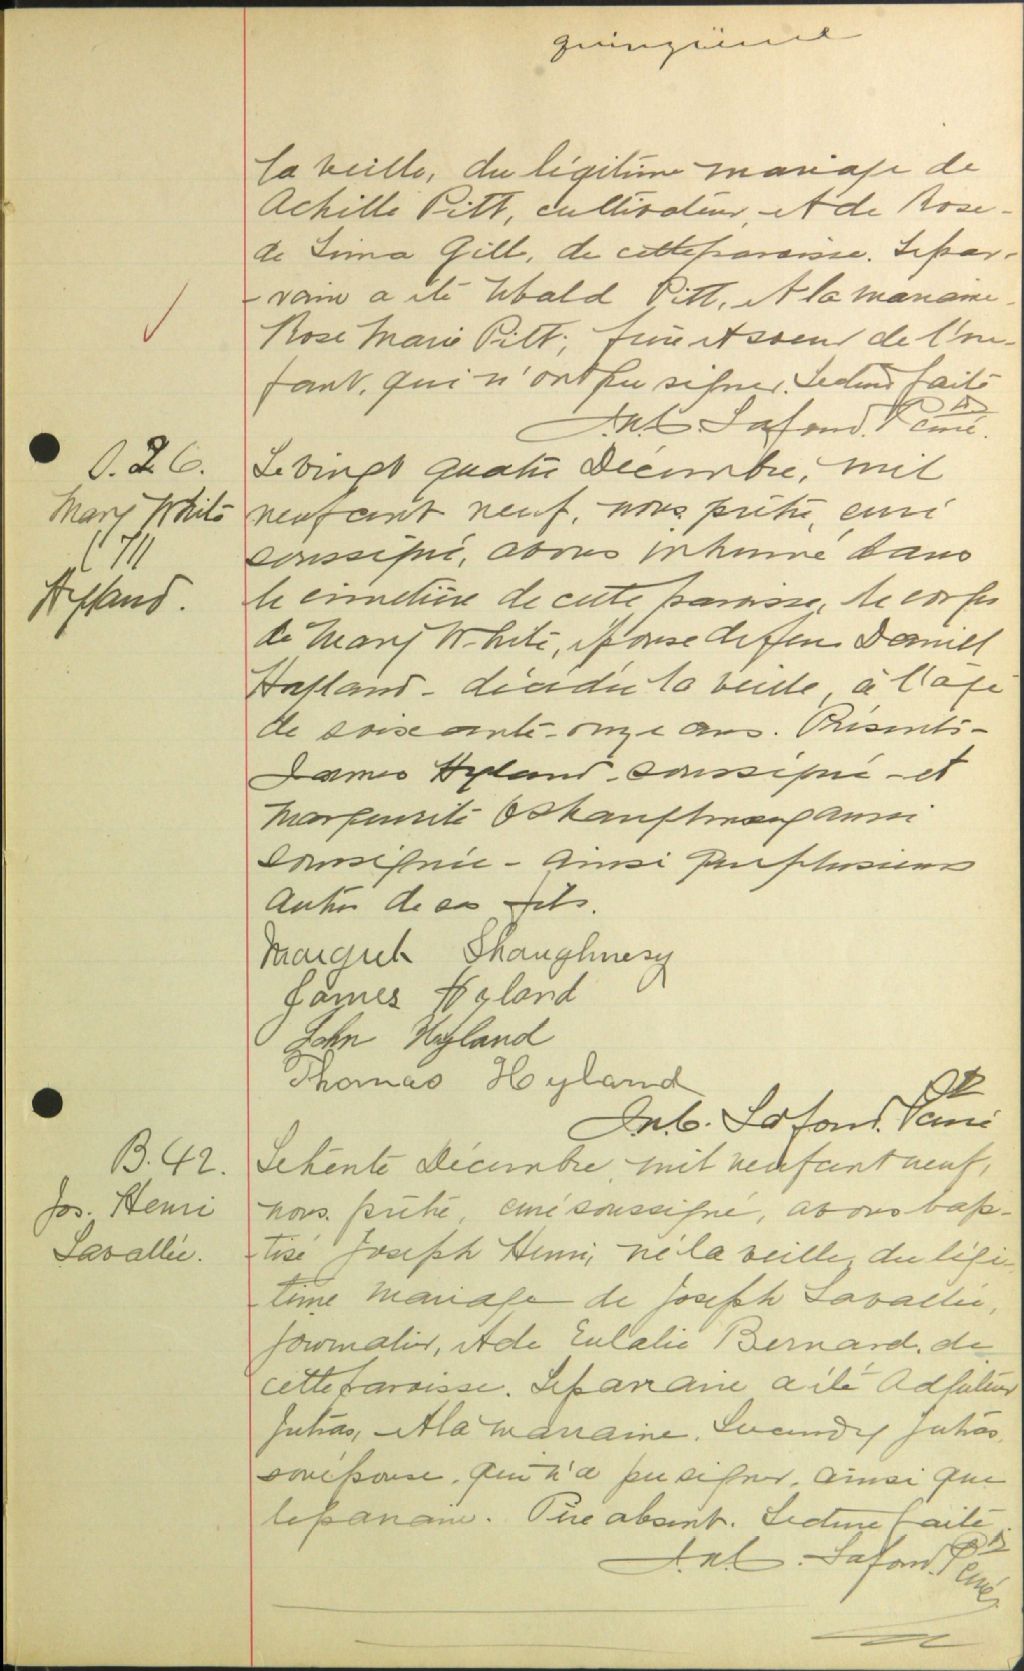 la veille, du légitime mariage de
Achille Pitt, cultivateur, et de Rose-
de Lima Gill, de cette paroisse. Le par-
-rain a été Ubald Pitt, et la marraine
Rose Marie Pitt; frère et soeur de l'en-
fant, qui n'ont pu signer. Lecture faite
J.N.C. Lafond. Ptre curé.
S. 26.
Mary White
(71)
Hyland.
Le vingt quatre Décembre, mil
neuf cent neuf, nous, prêtre, curé
soussigné, avons inhumé dans
le cimetière de cette paroisse, le corps
de Mary White, épouse de feu Daniel
Hyland - décédée la veille, à l'âge
de soixante-onze ans. Présents-
James Hyland - soussigné - et
Marguerite Oshaughnesy aussi
soussignée - ainsi que plusieurs
autres de ses fils.
Margret Shaughnesy
James Hyland
John Hyland
Thomas Hyland
J.N.C. Lafond. Ptre curé
B. 42.
Jos. Henri
Lavallée.
Le trente Décembre, mil neuf cent neuf,
nous, prêtre, curé soussigné, avons bap-
-tisé Joseph Henri, né la veille, du légi-
-time mariage de Joseph Lavallée,
journalier, et de Eulalie Bernard, de
cette paroisse. Le parrain a été Adjuteur
Jutras, et la marraine, Jutras,
son épouse, qui n'a pu signer, ainsi que
le parrain. Père absent. Lecture faite.
J.N.C. Lafond. Ptre curé